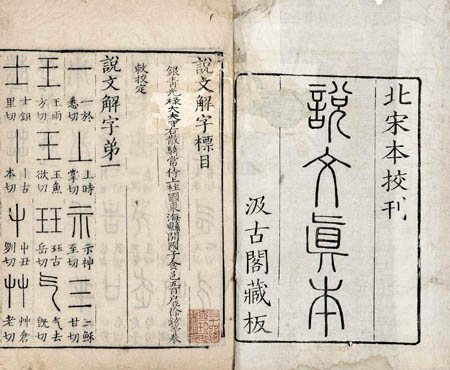 北宋本挍刊
說文眞本
汲古閣藏板
說文解字標目
銀青光祿大夫守右散騎常侍上柱國東海縣開國子食邑五百户徐鉉等奉
敕挍定
說文解字第一
一 一於悉切 丄 上時掌切 示 示神至切 三 三穌甘切
王 王雨方切 玉 玉魚欲切 玨 珏古岳切 气 气去旣切
士 士鉏里切 丨 丨古本切 屮 屮丑列切 艸 艸倉老切